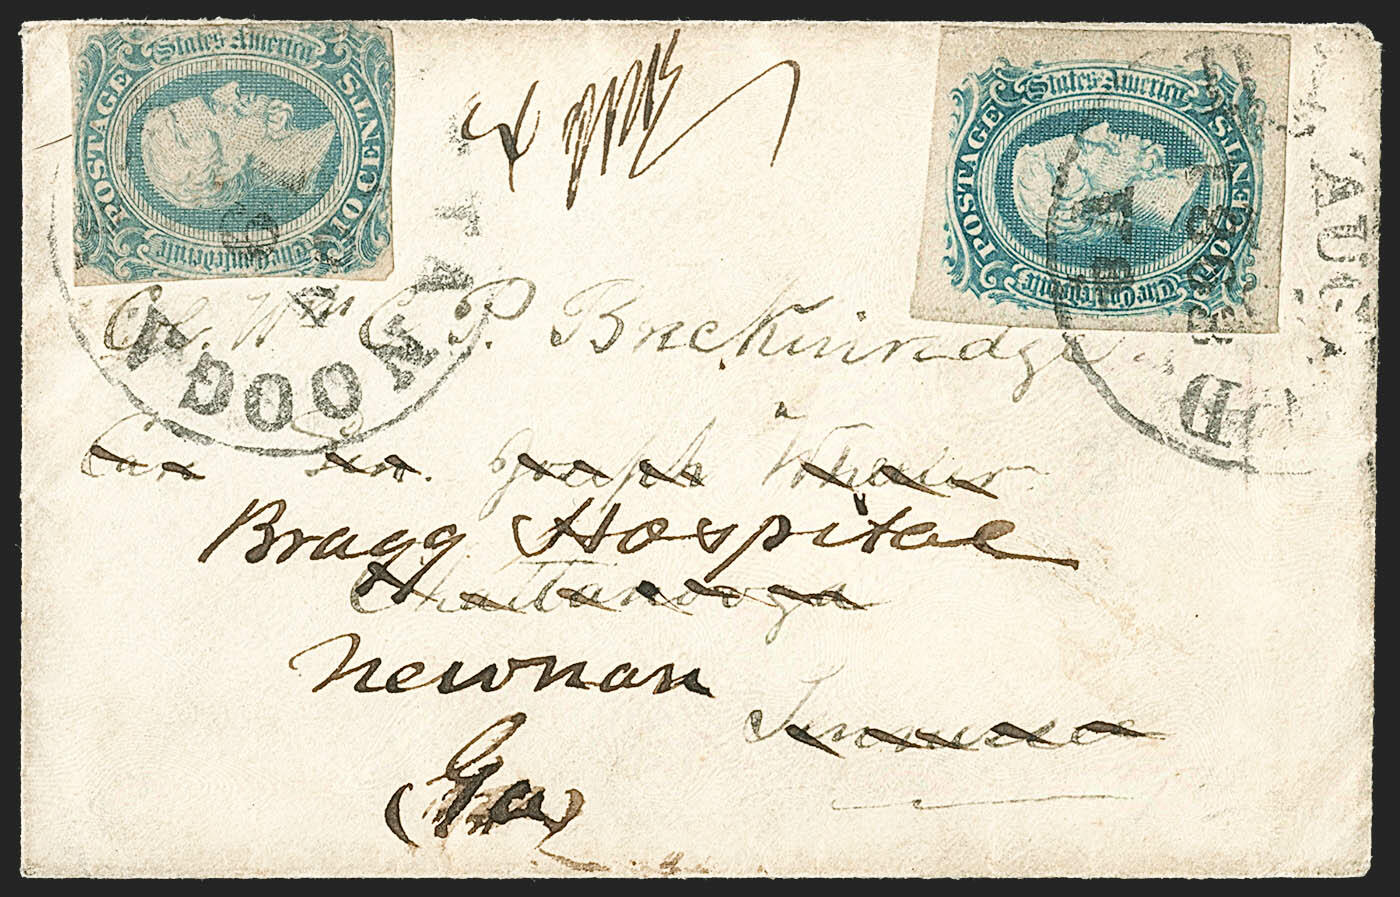 States America
POSTAGE
TEN CENTS
The Confederate
States America
POSTAGE
TEN CENTS
The Confederate
NOOGA
AUG
Col. Wm C. P. Breckinridge
Care Gen. Joseph Wheeler
Bragg Hospital
Chattanooga
Newnan
Tennessee
(Ga)